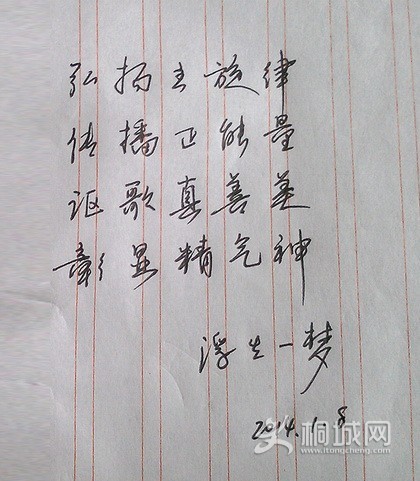 弘扬主旋律
传播正能量
讴歌真善美
彰显精气神
浮生一梦
2014.1.8
桐城网
www.itongcheng.com